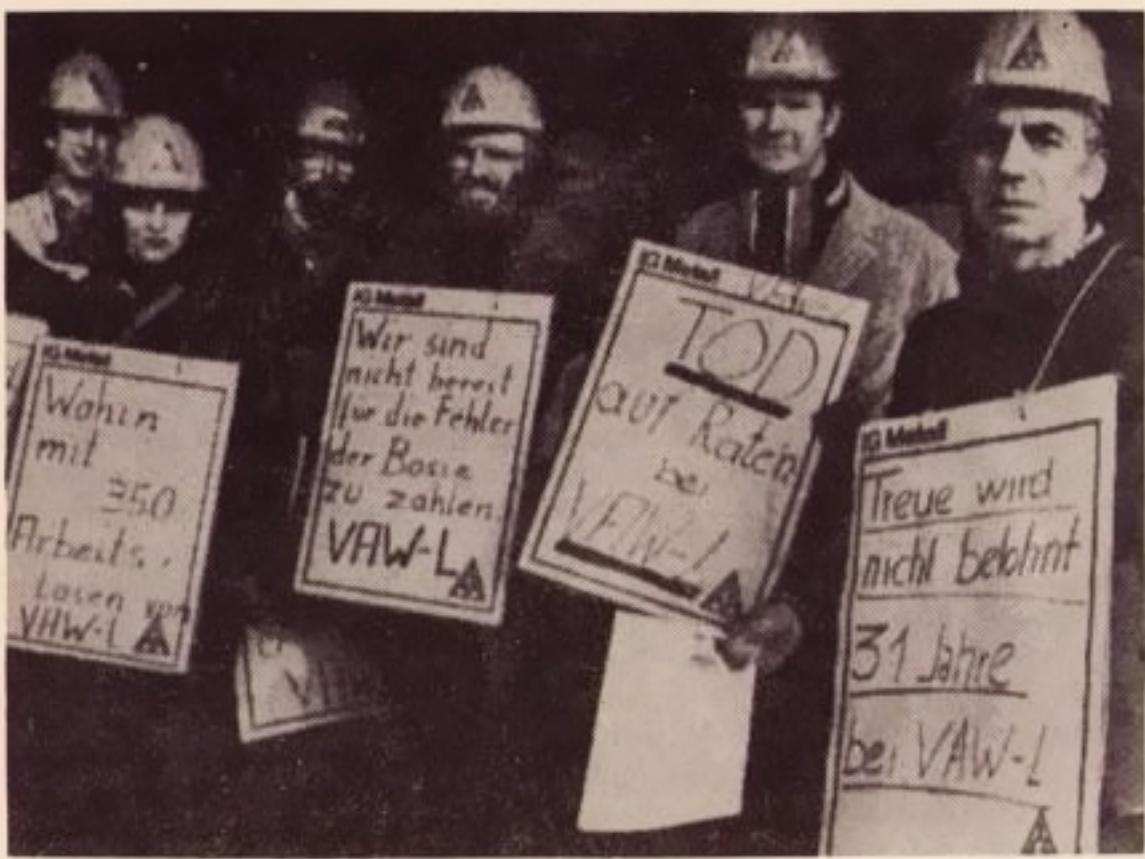 IG Metall
Wohin
mit
350
Arbeits-
Losen von
VAW-L
IG Metall
Wir sind
nicht bereit
für die Fehler
der Bosse
zu zahlen.
VAW-L
IG Metall
TOD
auf Raten
bei
VAW-L
IG Metall
Treue wird
nicht belohnt
31 Jahre
bei VAW-L